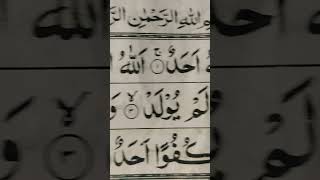 اللهِ الرَّحْمٰنِ
اَحَدٌ ۚ ۝١ اَللّٰهُ
لَمْ يُوْلَدْ ۙ ۝٣ وَ
كُفُوًا اَحَدٌ